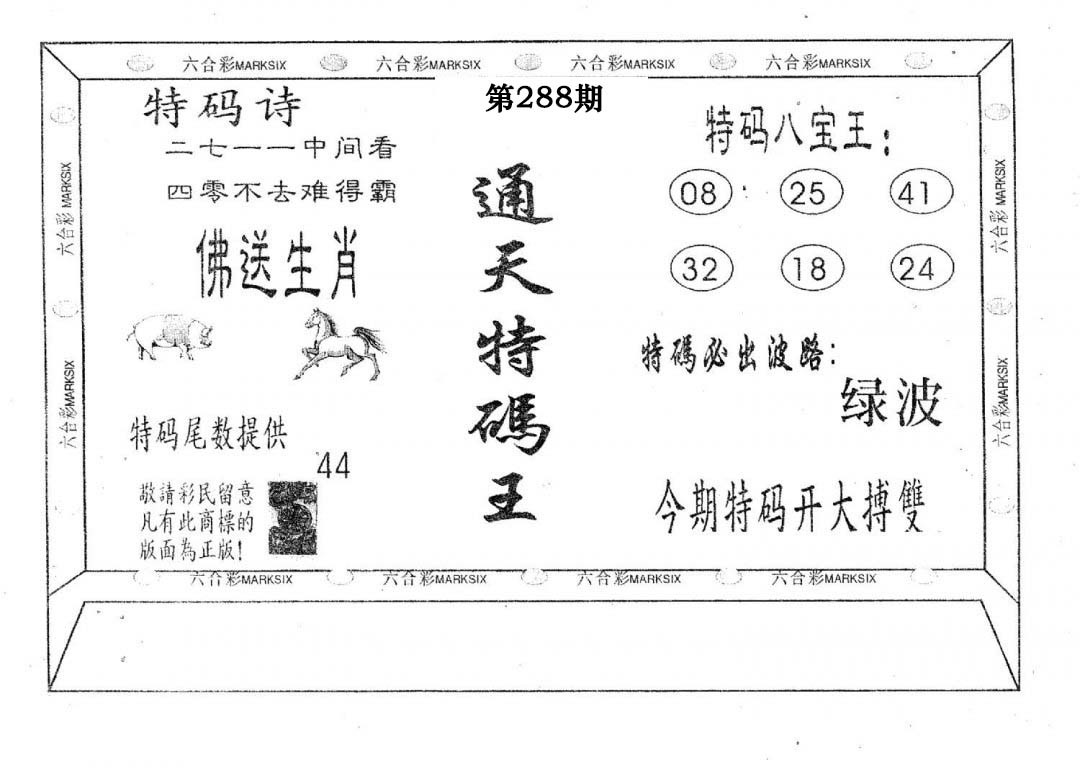 六合彩MARKSIX 六合彩MARKSIX 六合彩MARKSIX 六合彩MARKSIX
第288期
特码诗
二七一一中间看
四零不去难得霸
佛送生肖
特码尾数提供
44
敬請彩民留意
凡有此商標的
版面為正版!
通天特碼王
特码八宝王:
08 25 41
32 18 24
特碼必出波路:
绿波
今期特码开大搏雙
六合彩MARKSIX
六合彩MARKSIX
六合彩MARKSIX
六合彩MARKSIX
六合彩MARKSIX 六合彩MARKSIX 六合彩MARKSIX 六合彩MARKSIX